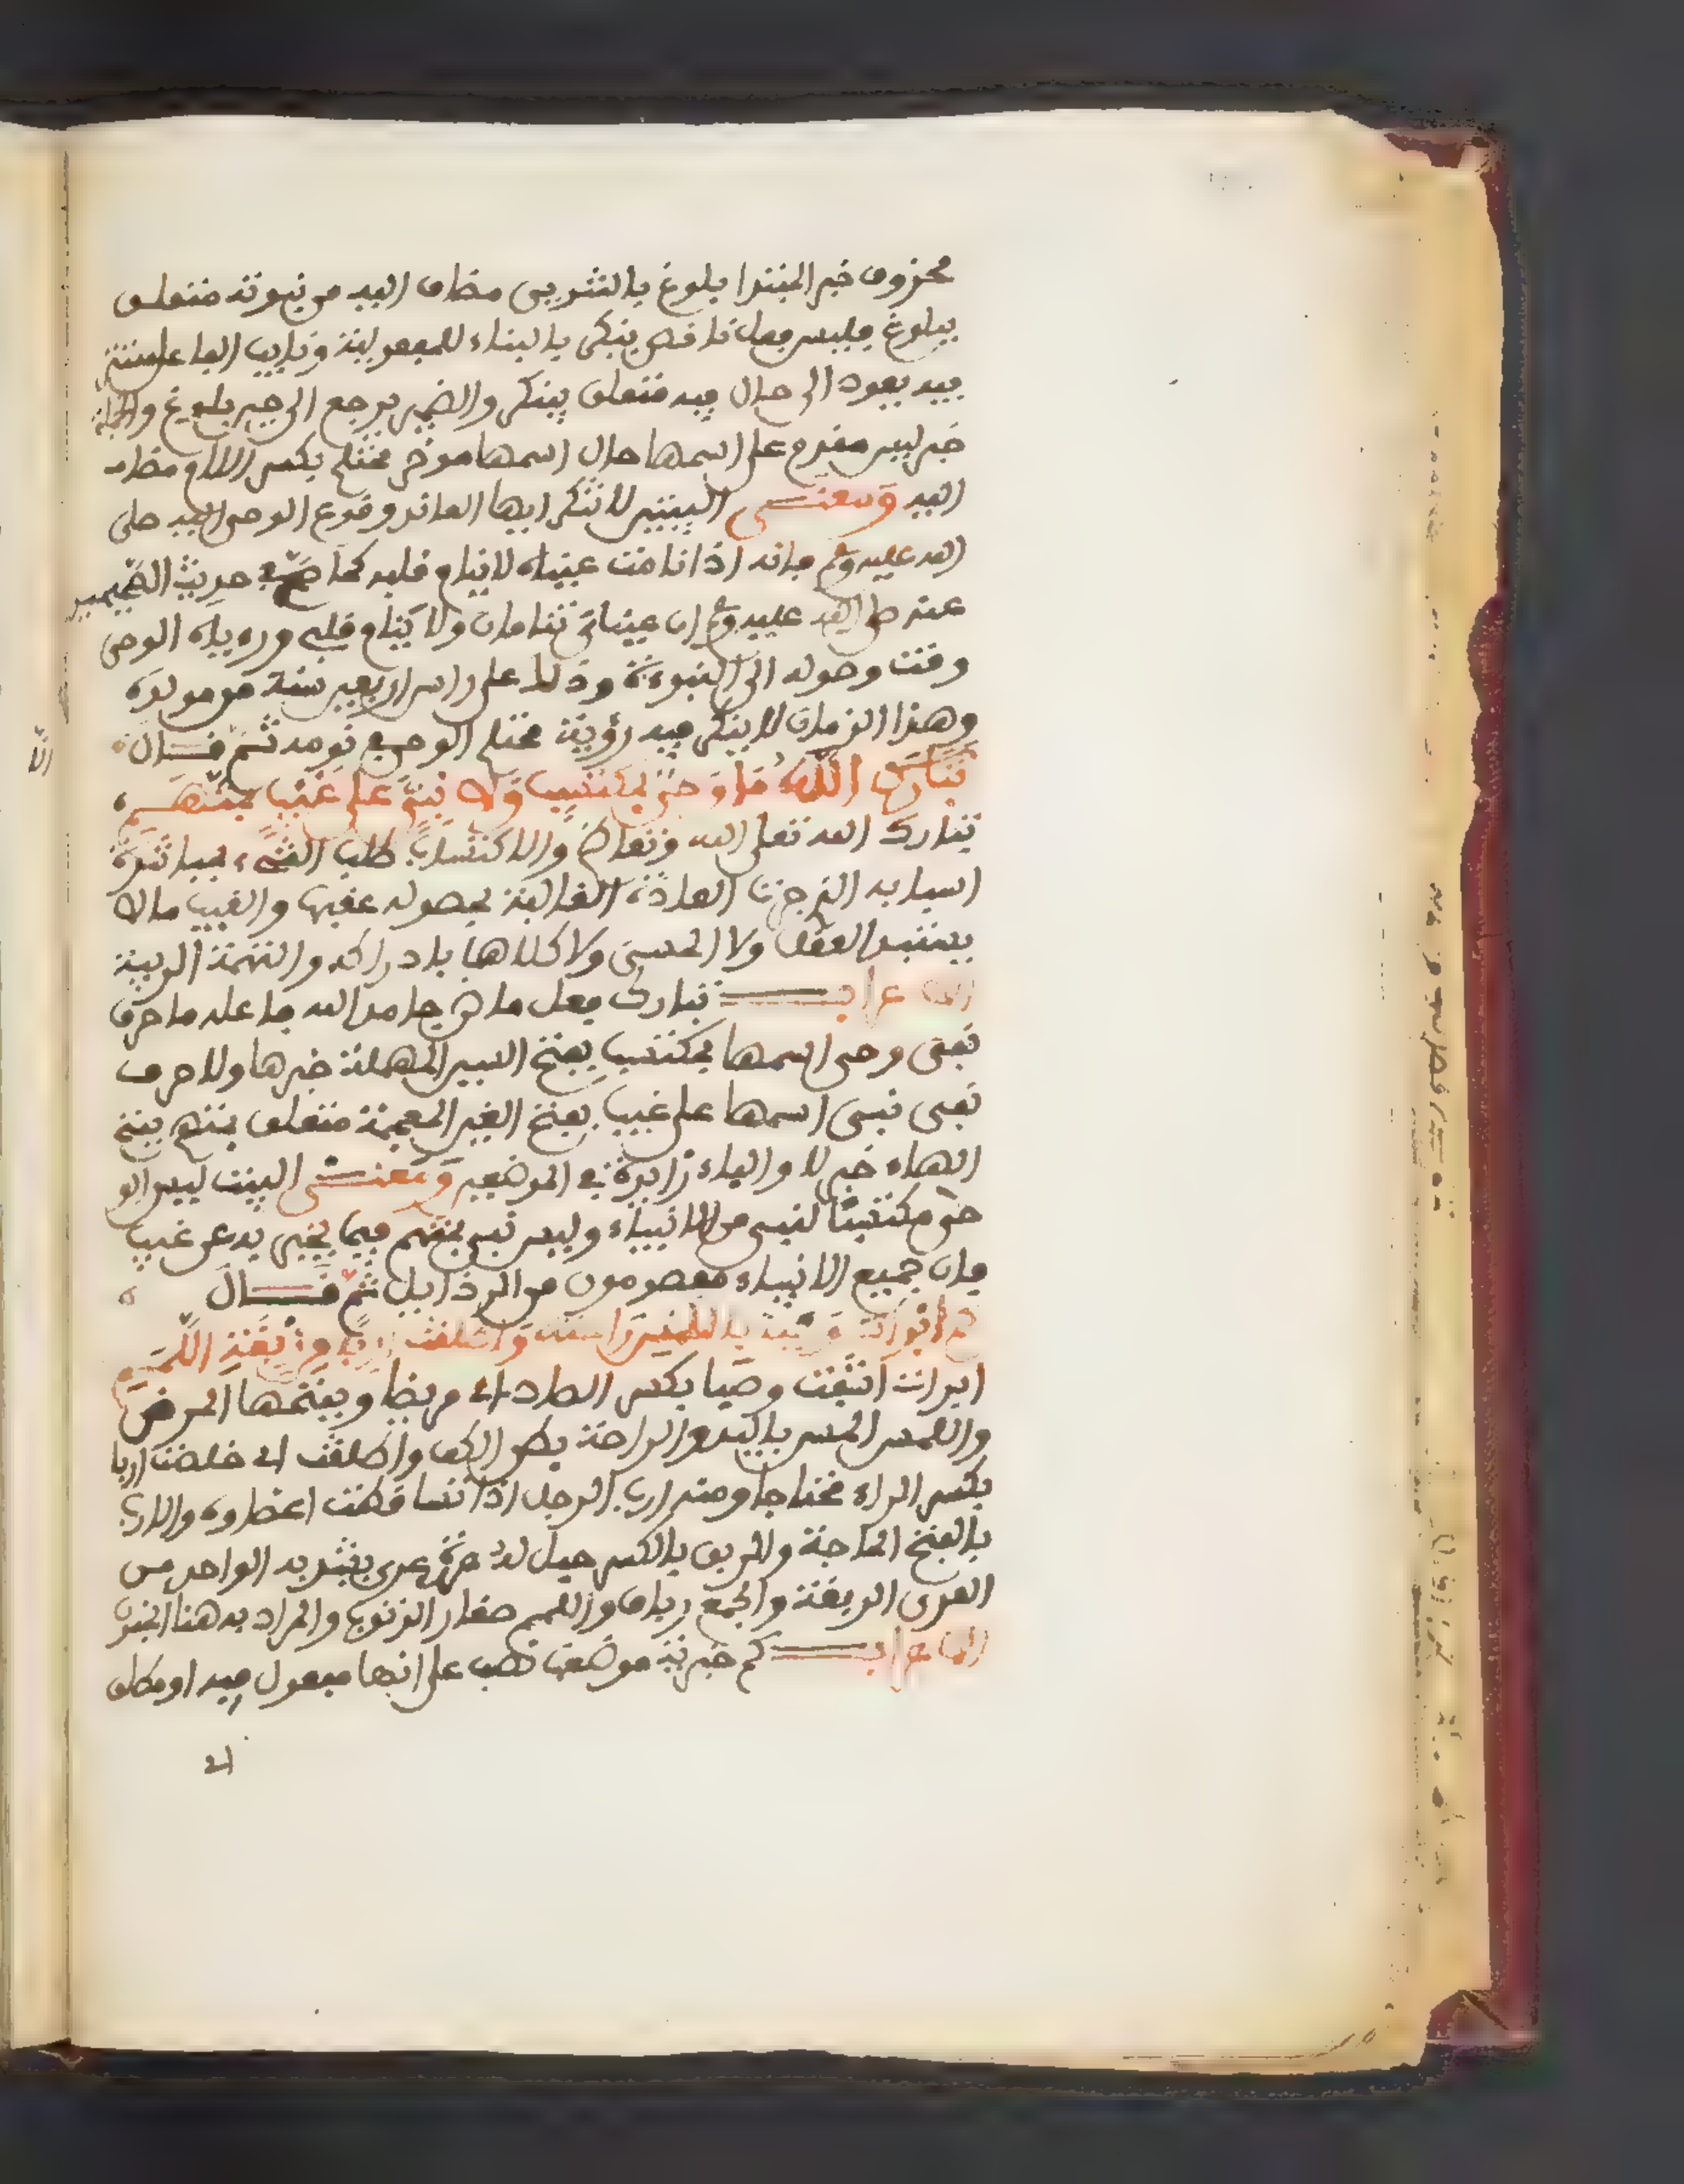 محذوف خبر المبتدا بلوغ بالتنوين مضاف اليه من نبوته متعلق
ببلوغ فليس فعل ناقص ينكر بالبناء للمفعول
فيه يعود الى حال فيه متعلق بينكر والضمير يرجع الى حين بلوغ والجملة
خبر ليس مقدم على اسمها حال اسمها موخر محتلم بكسر اللام مضاف
اليه ومعنى البيتين لا تنكر ايها المعاند وقوع الوحى اليه صلى
الله عليه وسلم فانه اذا نامت عيناه لا ينام قلبه كما صح في حديث الصحيحين
عنه صلى الله عليه وسلم ان عيناي تنامان ولا ينام قلبي ورؤياه الوحى
وقت وصوله الى النبوة وذلك على راس اربعين سنة من مولده
وهذا الزمان لا ينكر فيه رؤية محتلم الوحي في نومه ثم قال
تبارك الله ما وحى بمكتسب ولا نبي على غيب بمتهم
تبارك الله تعالى الله وتعاظم والاكتساب طلب الشيء بمباشرة
اسبابه التي جرت العادة الغالبة بحصوله عقبها والغيب ما لا
يستبد العقل ولا الحس ولا كلاهما بادراكه والتهمة الريبة
الاعراب تبارك فعل ماض جامد الله فاعله ما حرف
نفي وحى اسمها بمكتسب بفتح السين المهملة خبرها ولا حرف
نفى نبى اسمها على غيب بفتح الغين المعجمة متعلق بمتهم بفتح
الهاء خبر لا والباء زايدة في الموضعين ومعنى البيت ليس الو
حي مكتسبا لنبي من الانبياء وليس نبي بمتهم فيما يخبر به عن غيب
فان جميع الانبياء معصومون من الرذايل ثم قال
كم ابرات وصبا باللمس راحته واطلقت اربا من ربقة اللمم
ابرات اشفت وصبا بكسر الصاد اي مريضا وبفتحها المرض
واللمس المس باليد والراحة بطن الكف واطلقت اي خلصت اربا
بكسر الراء محتاجا ومنه ارب الرجل اذا تساقطت اعضاوه والارب
بالفتح الحاجة والربق بالكسر حبل له عدة عرى يشد به الواحد من
العرى الربقة والجمع رباق واللمم صغار الذنوب والمراد به هنا الجنون
الاعراب كم خبرية موضعها نصب على انها مفعول فيه او مطلق
اي